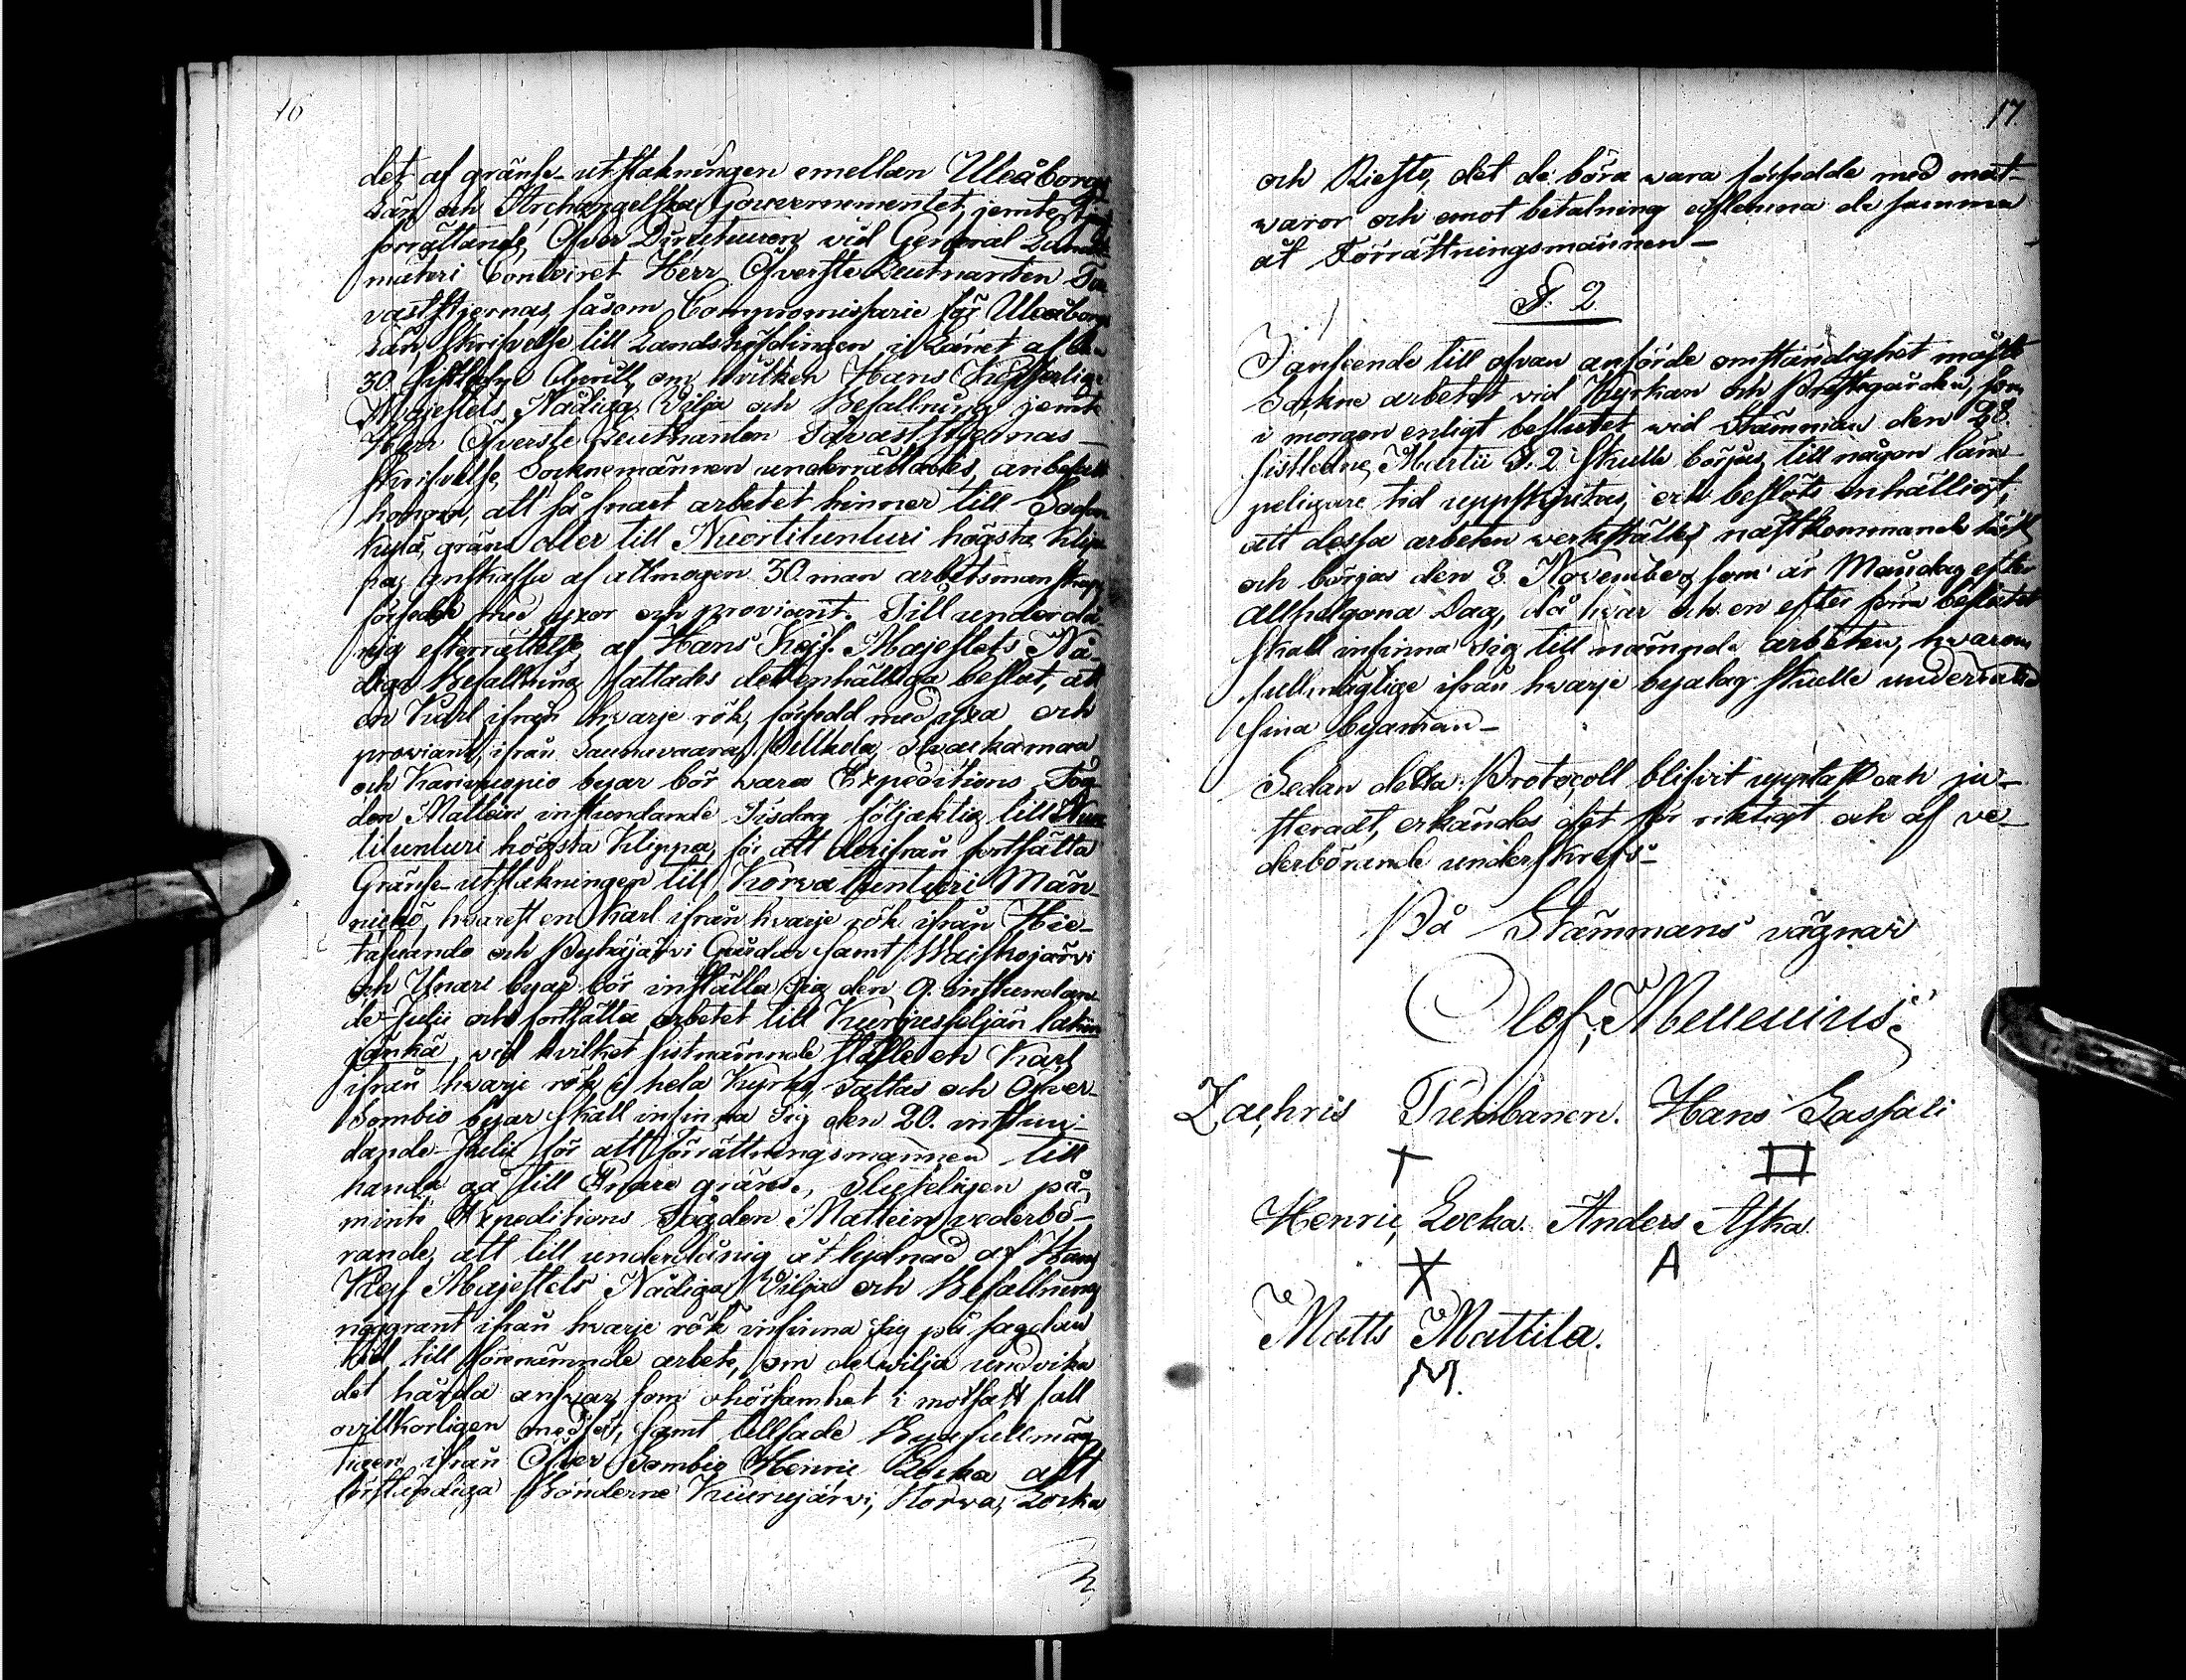 16
det af gränse-utstakningen emellan Uleåborgs
Län och Archangelska Gouvernementet, jemte
förrättande, Öfver Directeuren vid General Landt-
mäteri Contoiret Herr Öfverste Leutnanten Ta-
vaststjernas, såsom Compromissarie för Uleåborgs
Län, skrifvelse till Landshöfdingen i Länet af den
30 sistledne Aprill, om hvilken Hans Kejserlige
Majestets Nådiga Vilja och Befallning jemte
Herr Öfverste Leutnanten Tavaststjernas
skrifvelse, Socknemännen underrättades, anbefalt
honom, att så snart arbetet hinner till Sodan
kylä gräns eller till Nuortitunturi högsta klip-
pa, anskaffa af allmogen 30 man arbetsmanskap
försedde med yxor och proviant. Till underdå-
nig efterrättelse af Hans Kejs. Majestets Nå-
diga Befallning fattades det enhälliga beslut, att
en Karl ifrån hvarje rök, försedd med yxa och
proviant, ifrån Saunavaara, Pelkola, Suvackamaa
och Kariepiopio byar bör vara Expeditions Fog-
den Mattein instundande Tisdag följaktig till Nuor
titunturi högsta Klippa, för att derifrån fortsätta
Gränse-utstakningen till Korvatunturi Män-
nickö, hvarest en Karl ifrån hvarje rök ifrån Hie-
tasuando och Pyhäjärvi Gårdar samt Waiskojärvi
och Unari byar bör inställa sig den 9. instundan-
de Julii och fortsätta arbetet till Kurjusseljän latun
jänkä, vid hvilket sistnämnde ställe en Karl
ifrån hvarje rök i hela Kyrko, Sattas och Öfver-
Sombio byar skall infinna sig den 20. instun-
dande Julii för att förrättningsmannen till
handa gå till Enare gräns. Sluteligen på-
minte Expeditions Fogden Mattein vederbö-
rande, att till underdånig åtlydnad af Hans
Kejs Majestets Nådiga Vilja och Befallning
noggrant ifrån hvarje rök infinna sig på sagdan
tid till förenämnde arbete, om de vilja undvika
det hårda answar, som ohörsamhet i motsatt fall
ovillkorligen medför, samt tillsade Byafullmäg-
tigen ifrån Öfver Sombio Henric Locka att
förständiga Bönderne Kuurujärvi, Korva, Locka
17.
och Riesto, det de böra vara försedde med mat-
waror och emot betalning aflemna de samma
åt Förrättningsmännen-
§. 2
I anseende till ofvan anförde omständighet måste
Sockne arbetet vid Kyrkan och Prestegården, som
i morgon enligt beslutet vid Stämman den 28.
sistledne Martii §. 2. skulle börjas, till någon läm-
peligare tid uppskjutas, och beslöts enhälligt,
att dessa arbeten verkställes nästkommande höst
och börjas den 8 November, som är Måndag efter
Allhelgona Dag, då hvar och en efter förra beslutet
skall infinna sig till nämnde arbeten, hvarom
fullmägtige ifrån hvarje byalag skulle underrätta
sina byamän-
Sedan detta Protocoll blifvit uppläst och ju-
steradt, erkändes det för riktigt och af ve-
derbörande underskrefs-
På Stämmans vägnar
Olof Mellenius.
Zachris Pukkanen. Hans Sassali
Henric Locka. Anders Aska.
A
Matts Mattila.
M.